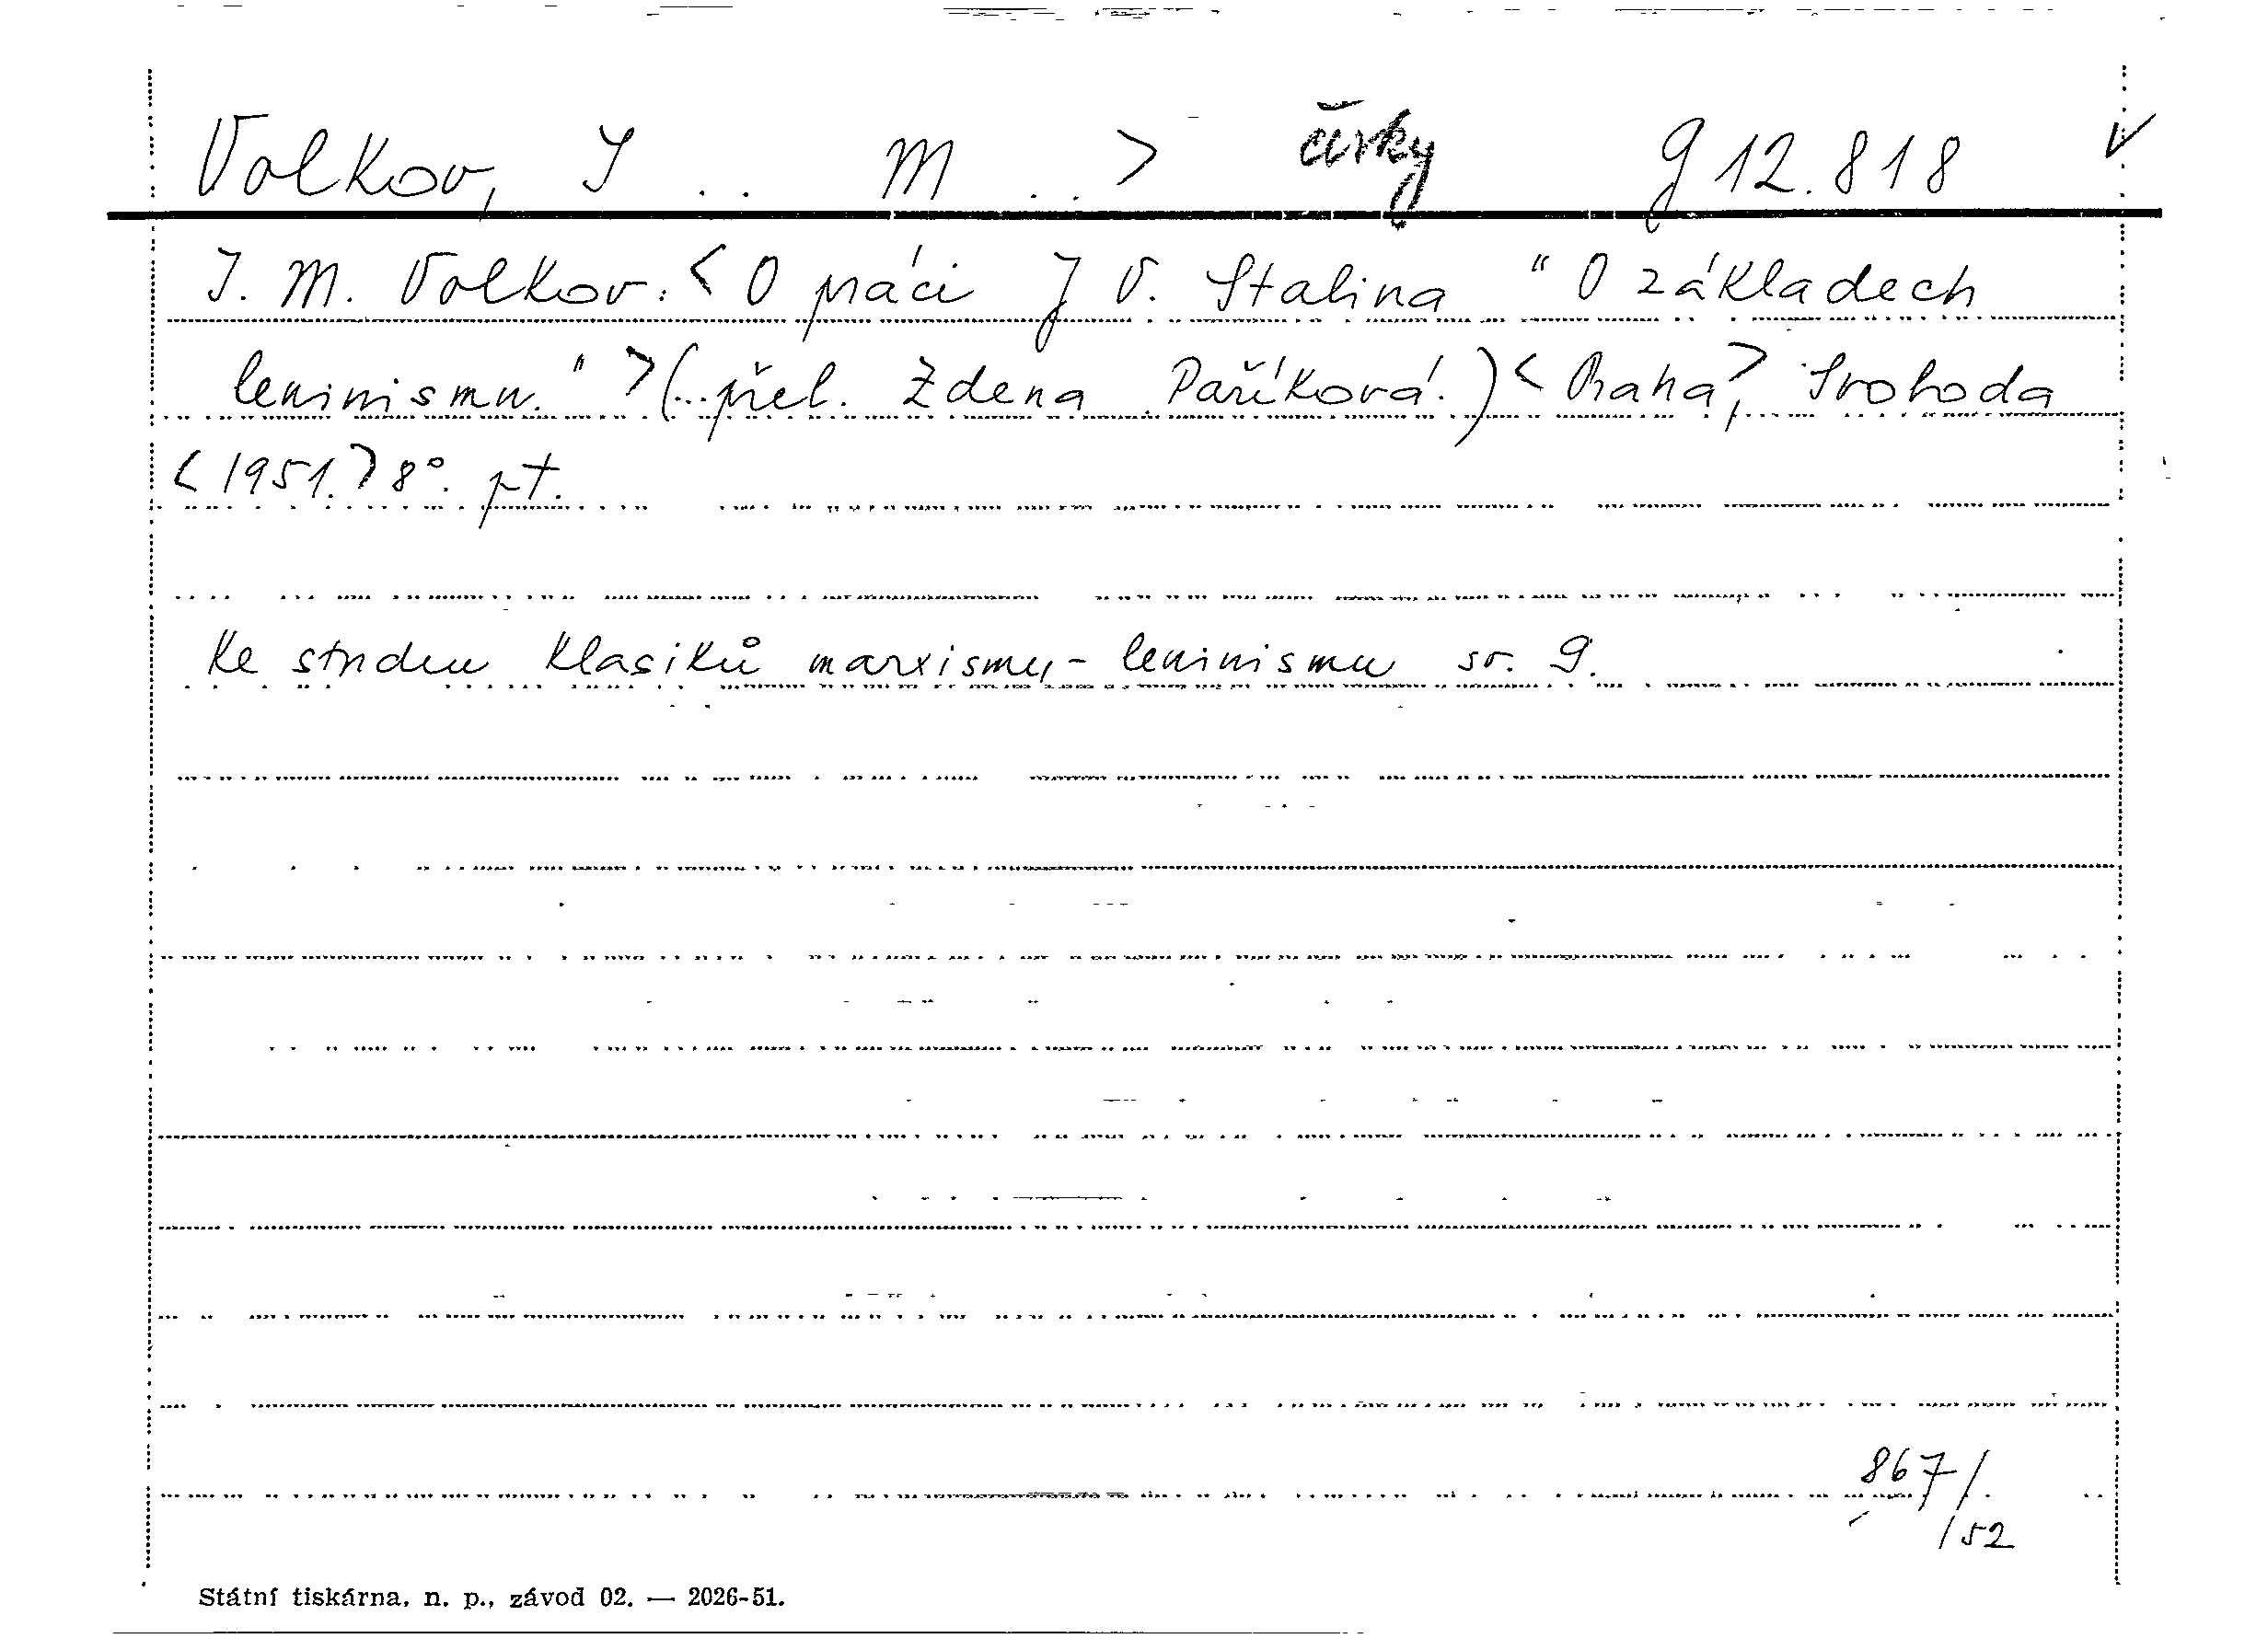 Volkov, I .. M .. > g 12.818 V
I. M. Volkov: < O práci J V. Stalina " O základech
leninismu. " > (...přel. Zdena Paříková.) < Praha >, Svoboda
< 1951. > 8°. pt.
Ke studiu klasiků marxismu - leninismu sv. 9.
867/
/52
Státní tiskárna, n. p., závod 02. — 2026-51.